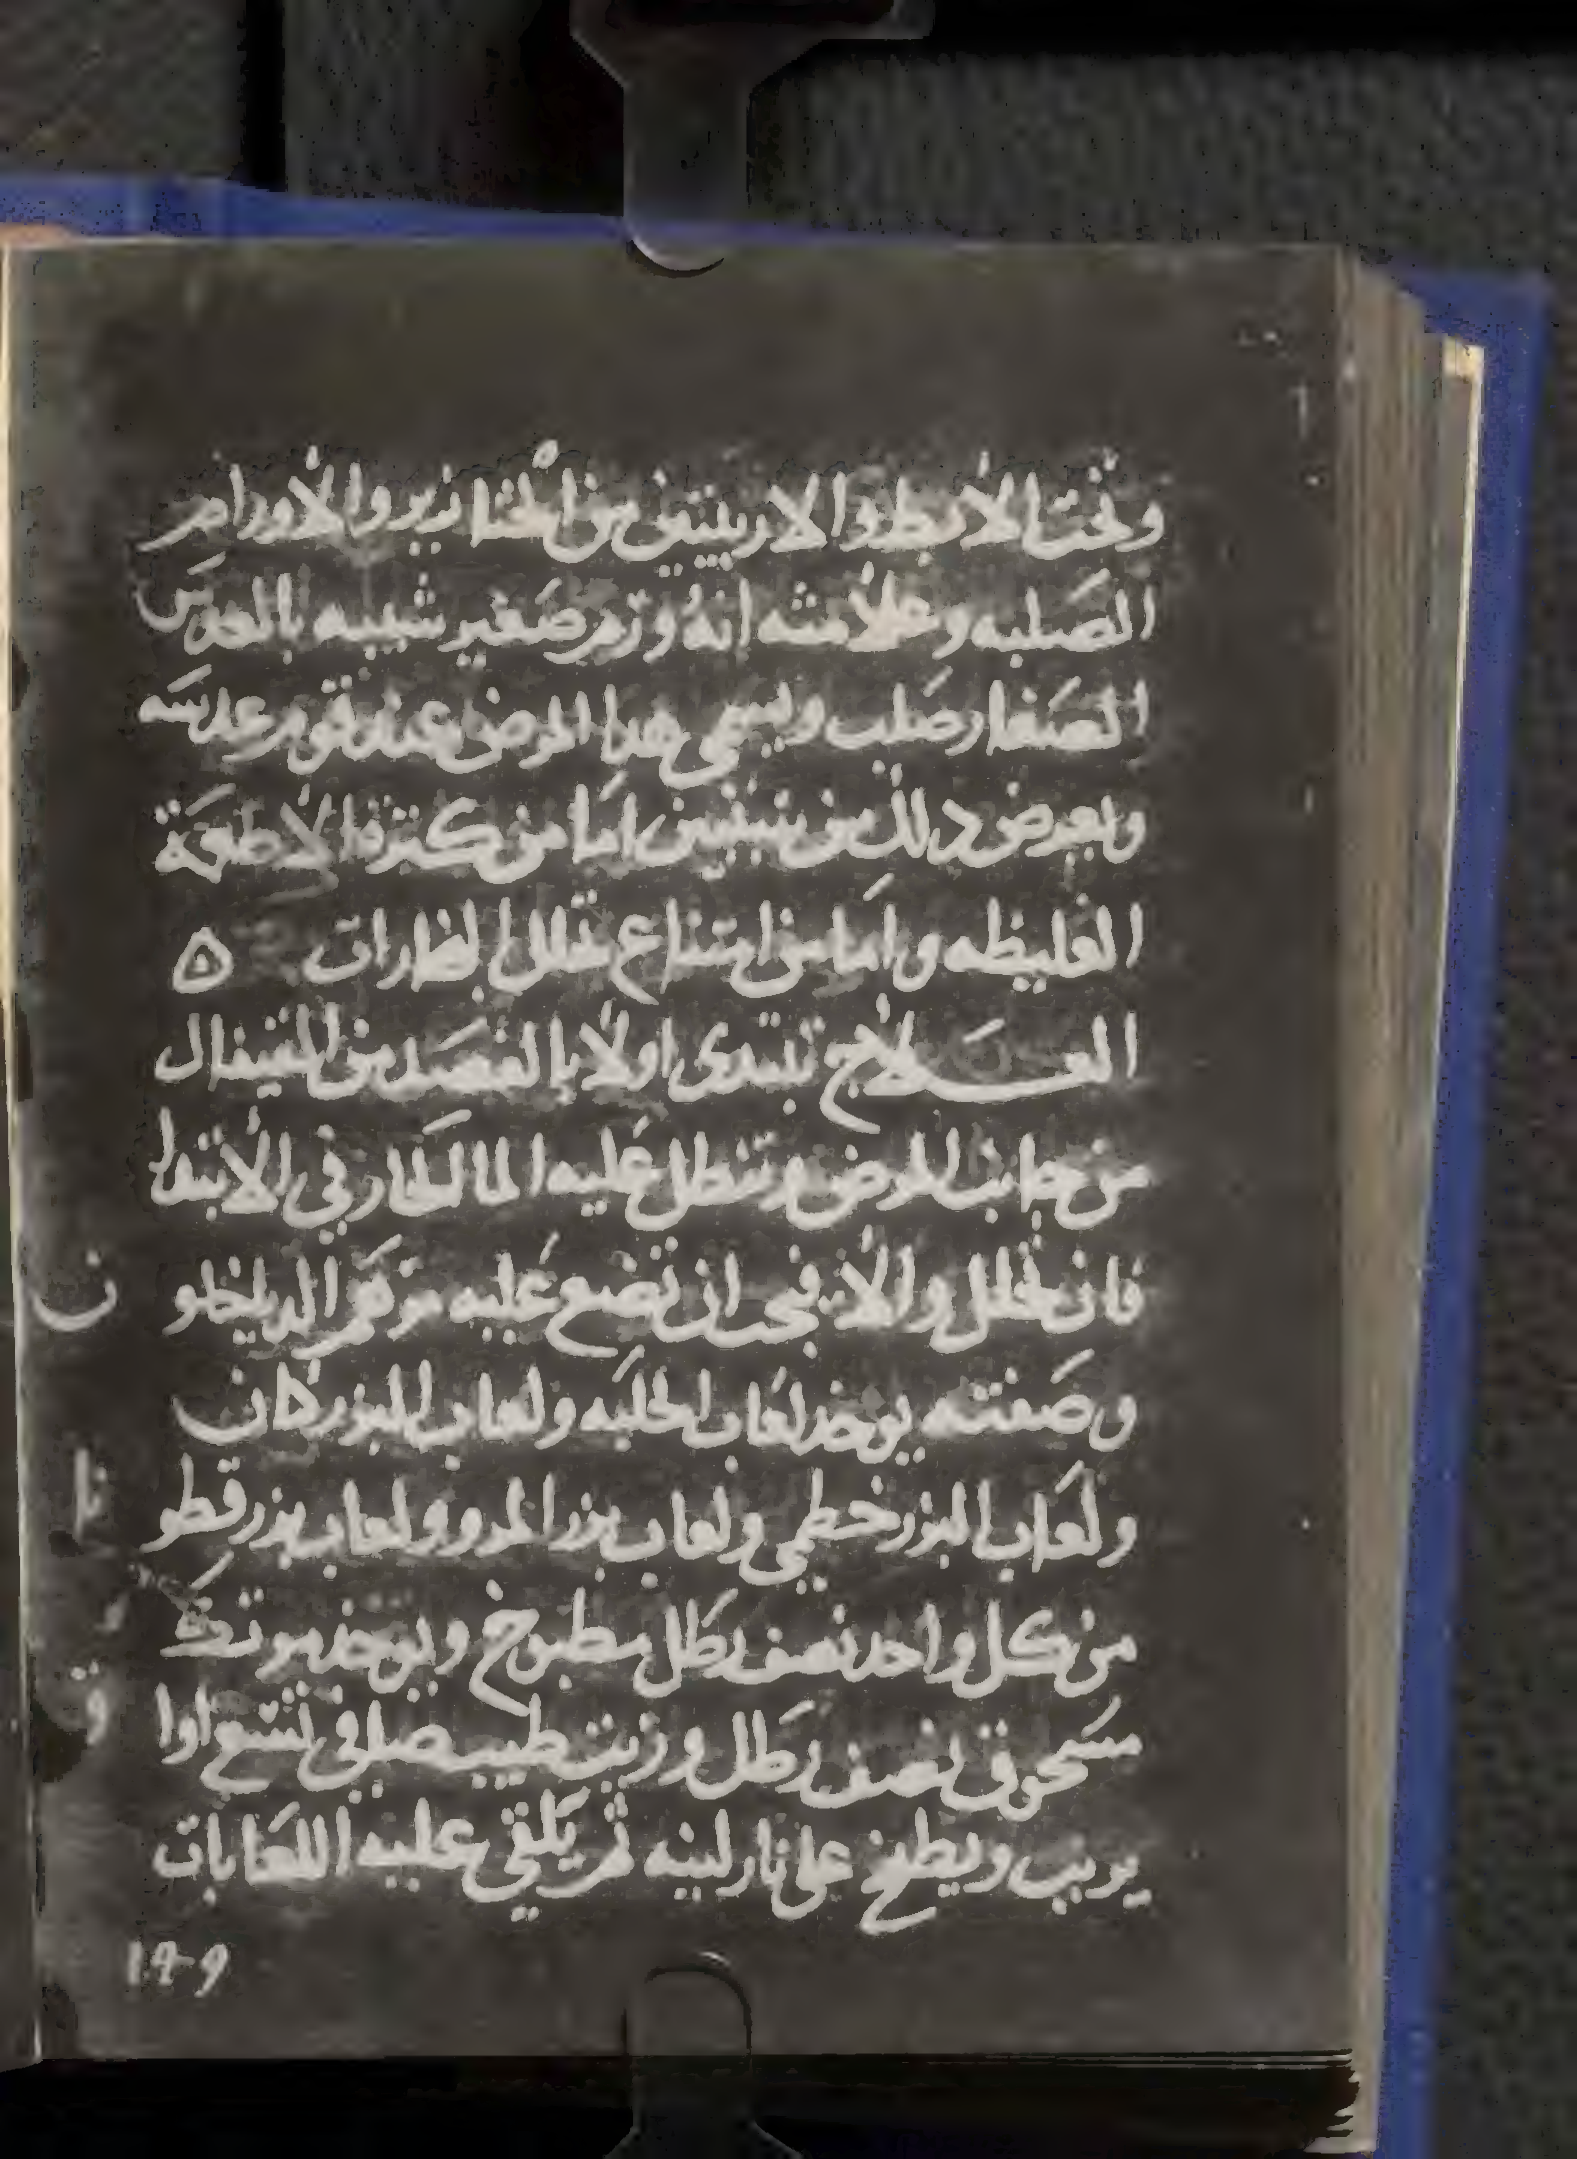 وتحت الأبط والاربيتين من الخنازير والأورام
الصَلبه وعلأمته انهُ ورَم صَغير شبيه بالعدسَ
الصَغار صَلب ويسمى هدا المرض عند قوم عدسَه
وتعرض دلك من شيئين اما من كثرة الأطعمَة
الغليظه واما من امتناع تحلل البخارات ه
العـــلاج تبتدى اولاً بالفصَد من القيفال
من جانب المرض وتنطل عَليه الما الحَار في الأبتدا
فان تحلل والأ فيجب ان تضع عَليه مرَهَم الدياخلو ن
وصَفته يوخد لعَاب الحلبَه ولعاب البزر كتان
ولعَاب البزر خطمي ولعاب بزر المرو ولعاب بزر قطو نا
من كل واحد نصف رطَل مطبوخ ويوخد مرتك
مسَحوق نصف رطَل وزيت طيب صافي تسَع اوا ق
يريب ويطبخ على نار لينه ثم يَلقي عليه اللعَابات
١٩٩